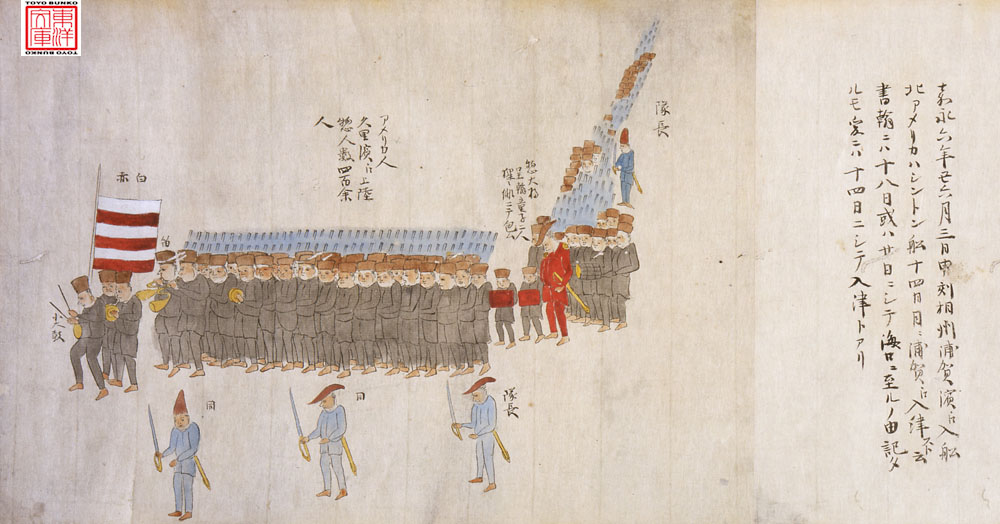 TOYO BUNKO
東洋文庫
TOYO BUNKO
嘉永六年丑六月三日申刻相州浦賀濱ニ入船
北アメリカハシントン船十四日目ニ浦賀ニ入津スト云
書翰ニハ十八日或ハ廿日ニシテ海口ニ至ルノ由記タ
ルモ十四日ニシテ入津トアリ
隊長
惣大将
呈翰童子二人
アメリカ人
久里濱ニ上陸
惣人数四百余
人
白
赤
隊長
同
同